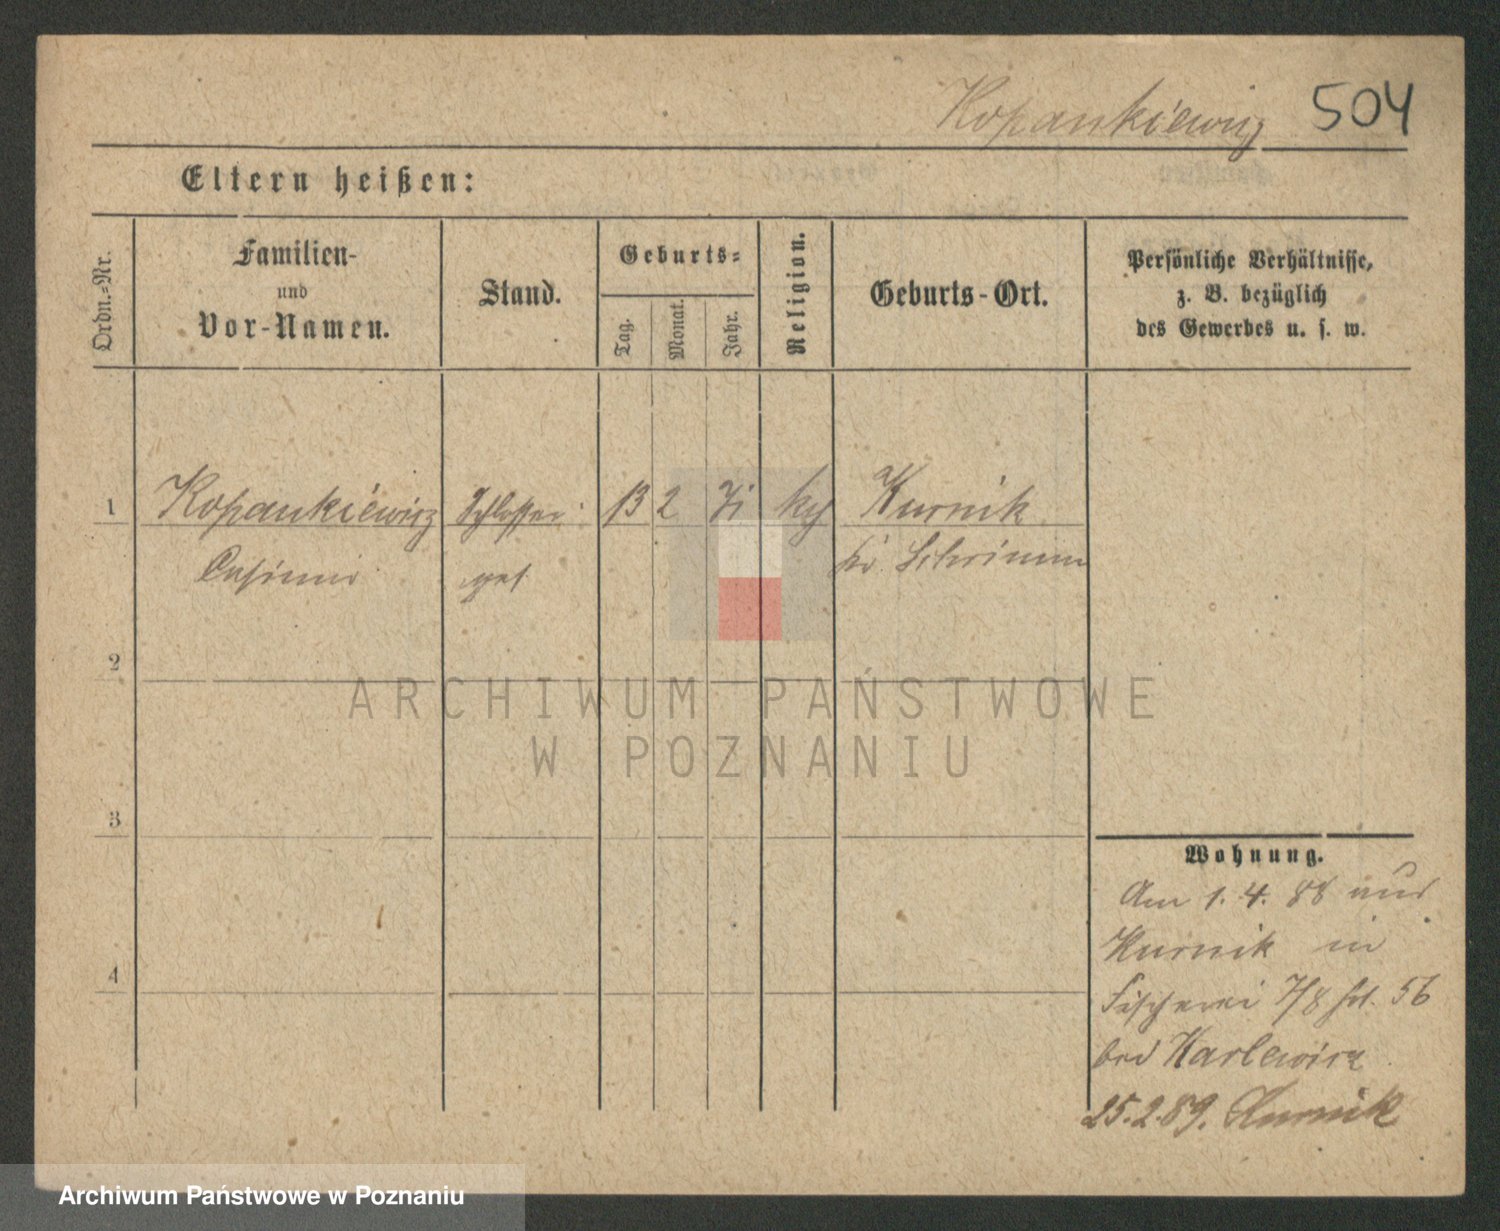 Kopankiewicz 504
Eltern heißen:
Ordn.=Nr.
Familien-
und
Vor-Namen.
Stand.
Geburts=
Tag.
Monat.
Jahr.
Religion.
Geburts-Ort.
Persönliche Verhältnisse,
z. B. bezüglich
des Gewerbes u. s. w.
1 Kopankiewicz Schlosser 13 2 Kurnik
Casimir
2
3
4
Wohnung.
Am 1. 4. 88 aus
Kurnik in
Fischerei 7/8 56
bei
25.2.89. Kurnik
ARCHIWUM PAŃSTWOWE
W POZNANIU
Archiwum Państwowe w Poznaniu